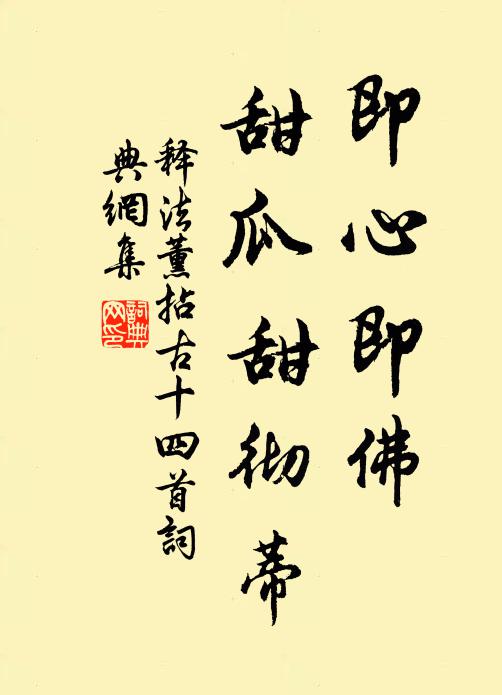 即心即佛
甜瓜甜彻蒂
释法薰拈古十四首詞
典網集
詞典網印